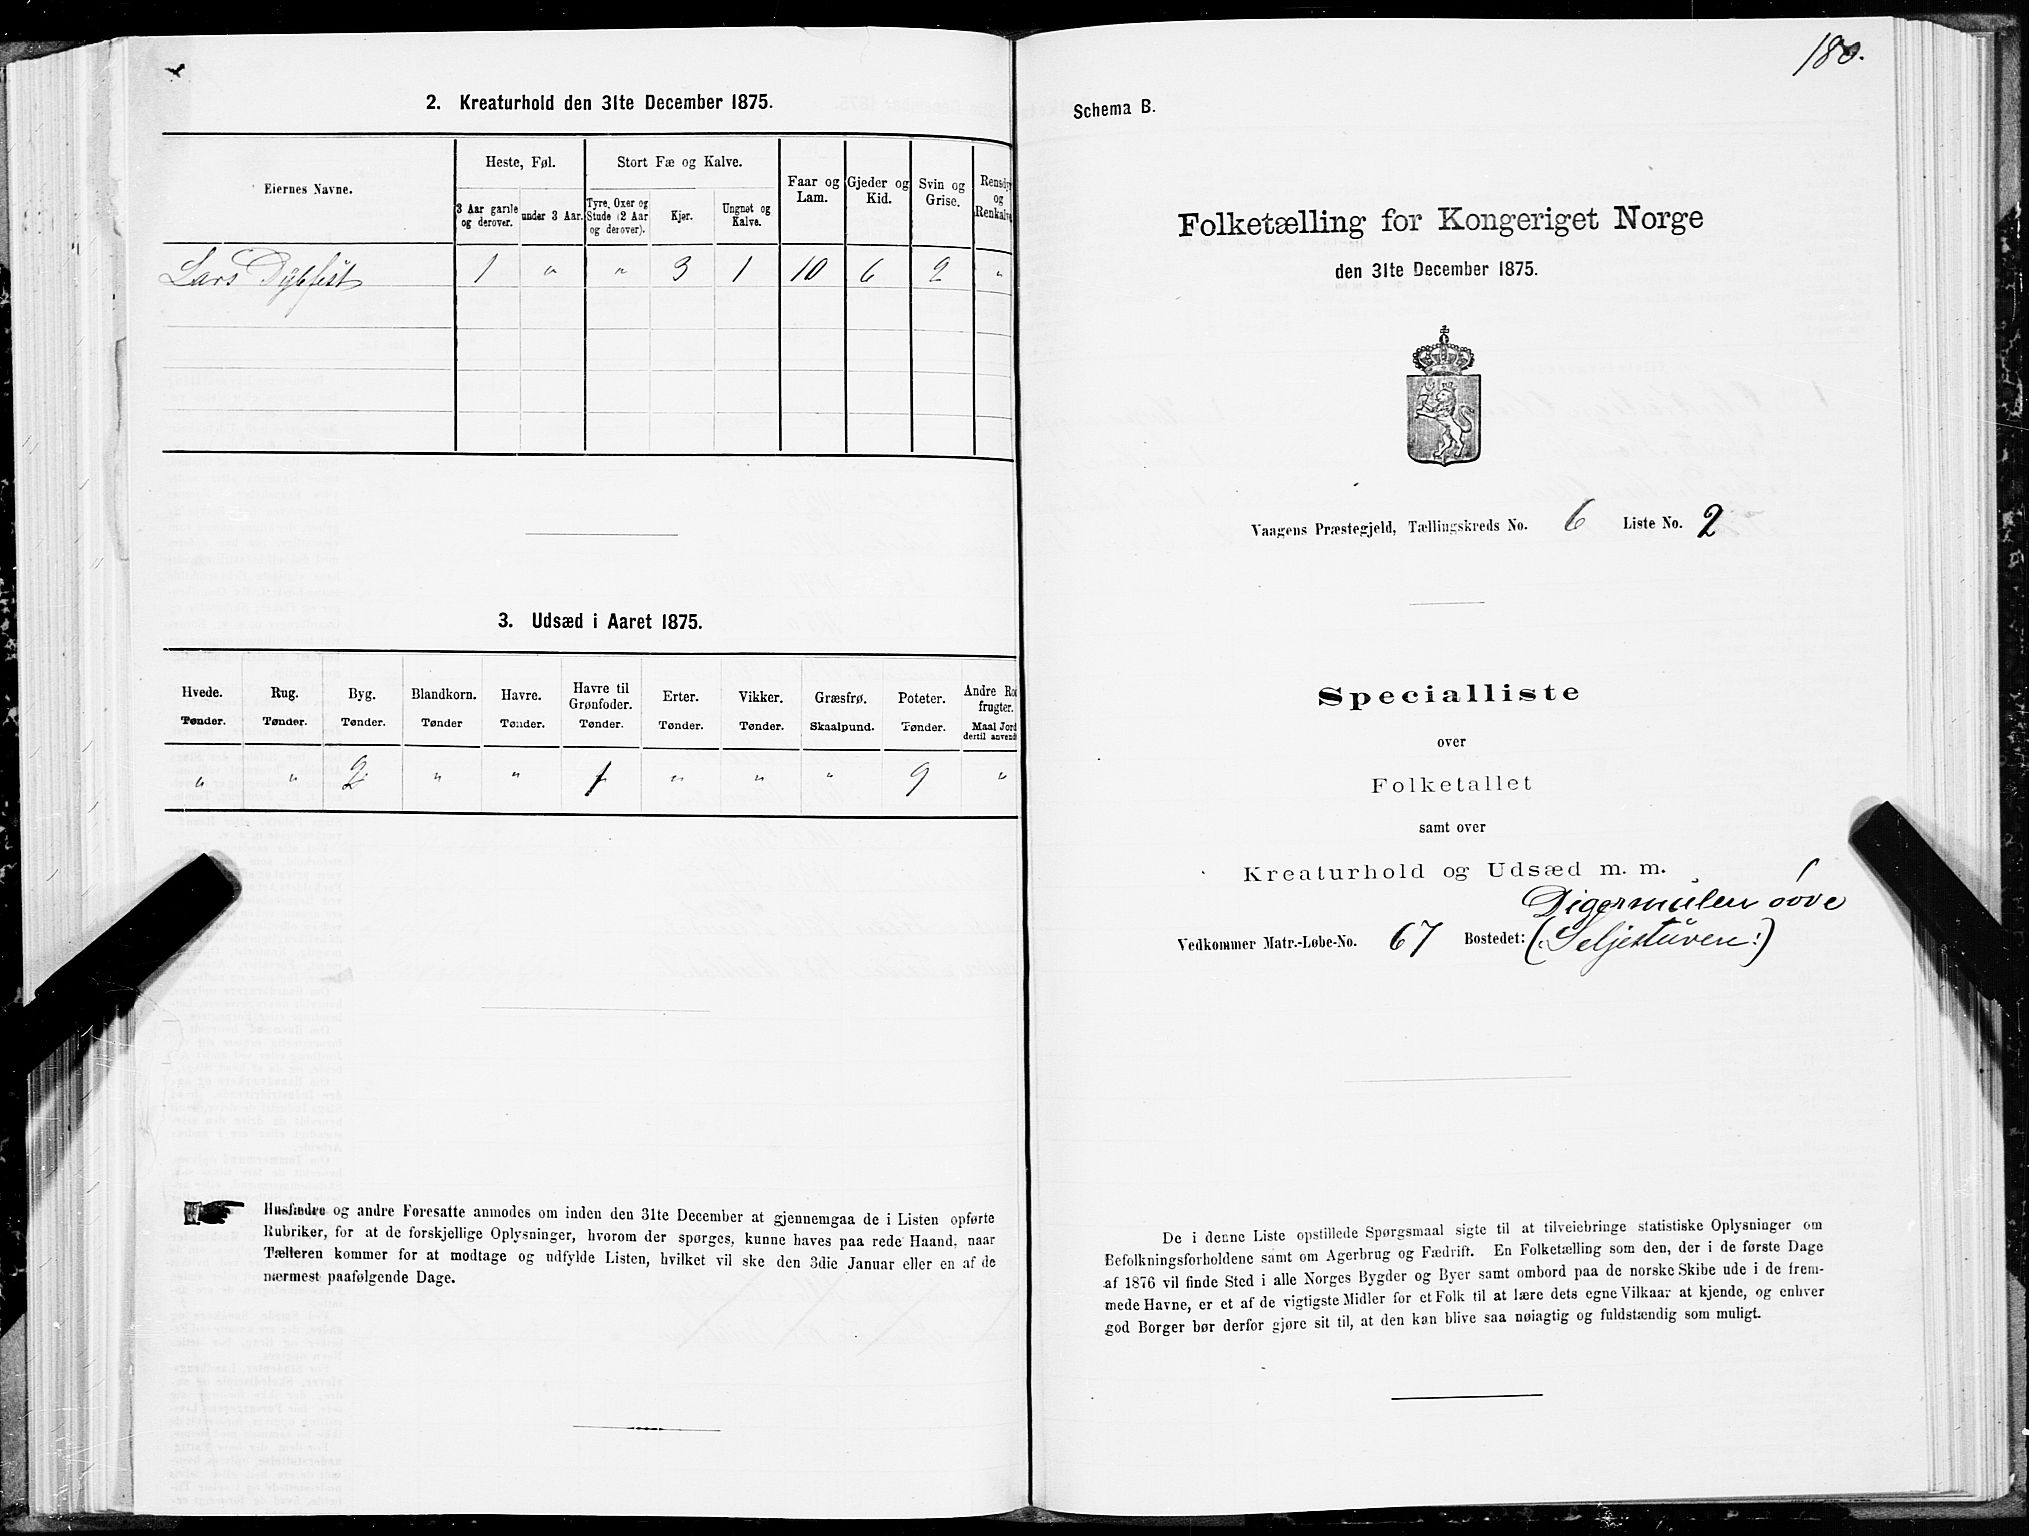 2. Kreaturhold den 31te December 1875.
Eiernes Navne.
Heste, Føl.
Stort Fæ og Kalve.
Faar og Lam.
Gjeder og Kid.
Svin og Grise.
Rensdyr og Renkalve
3 Aar gamle og derover.
under 3 Aar.
Tyre, Oxer og Stude (2 Aar og derover).
Kjør.
Ungnøt og Kalve.
Lars Dybfest 1 " " 3 1 10 6 2 "
3. Udsæd i Aaret 1875.
Hvede. Rug. Byg. Blandkorn. Havre. Havre til Grønfoder. Erter. Vikker. Græsfrø. Poteter. Andre Rodfrugter.
Tønder. Tønder. Tønder. Tønder Tønder. Tønder. Tønder. Tønder. Skaalpund. Tønder. Maal Jord dertil anvendt
" " 2 " " 1 " " " 9 "
Husfædre og andre Foresatte anmodes om inden den 31te December at gjennemgaa de i Listen opførte
Rubriker, for at de forskjellige Oplysninger, hvorom der spørges, kunne haves paa rede Haand, naar
Tælleren kommer for at modtage og udfylde Listen, hvilket vil ske den 3die Januar eller en af de
nærmest paafølgende Dage.
180.
Schema B.
Folketælling for Kongeriget Norge
den 31te December 1875.
Vaagens Præstegjeld, Tællingskreds No. 6 Liste No. 2
Specialliste
over
Folketallet
samt over
Kreaturhold og Udsæd m. m.
Digermulen øvre
Vedkommer Matr.-Løbe-No. 67 Bostedet: (Seljestuven:)
De i denne Liste opstillede Spørgsmaal sigte til at tilveiebringe statistiske Oplysninger om
Befolkningsforholdene samt om Agerbrug og Fædrift. En Folketælling som den, der i de første Dage
af 1876 vil finde Sted i alle Norges Bygder og Byer samt ombord paa de norske Skibe ude i de frem-
mede Havne, er et af de vigtigste Midler for et Folk til at lære dets egne Vilkaar at kjende, og enhver
god Borger bør derfor gjøre sit til, at den kan blive saa nøiagtig og fuldstændig som muligt.